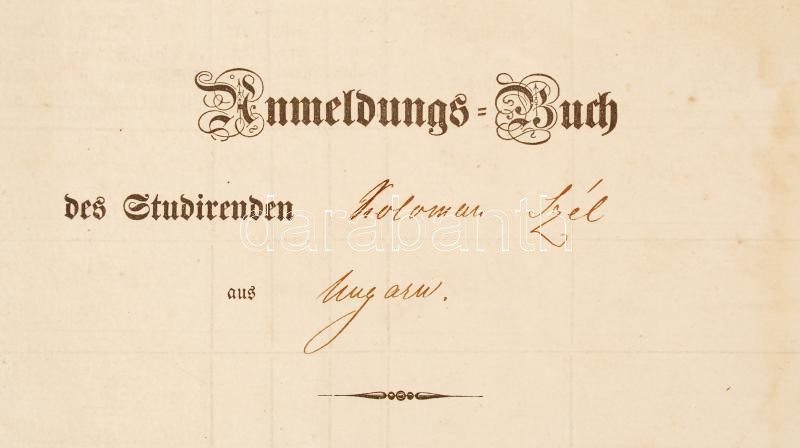 Anmeldungs=Buch
des Studirenden Koloman Szél
aus Ungarn.
darabanth